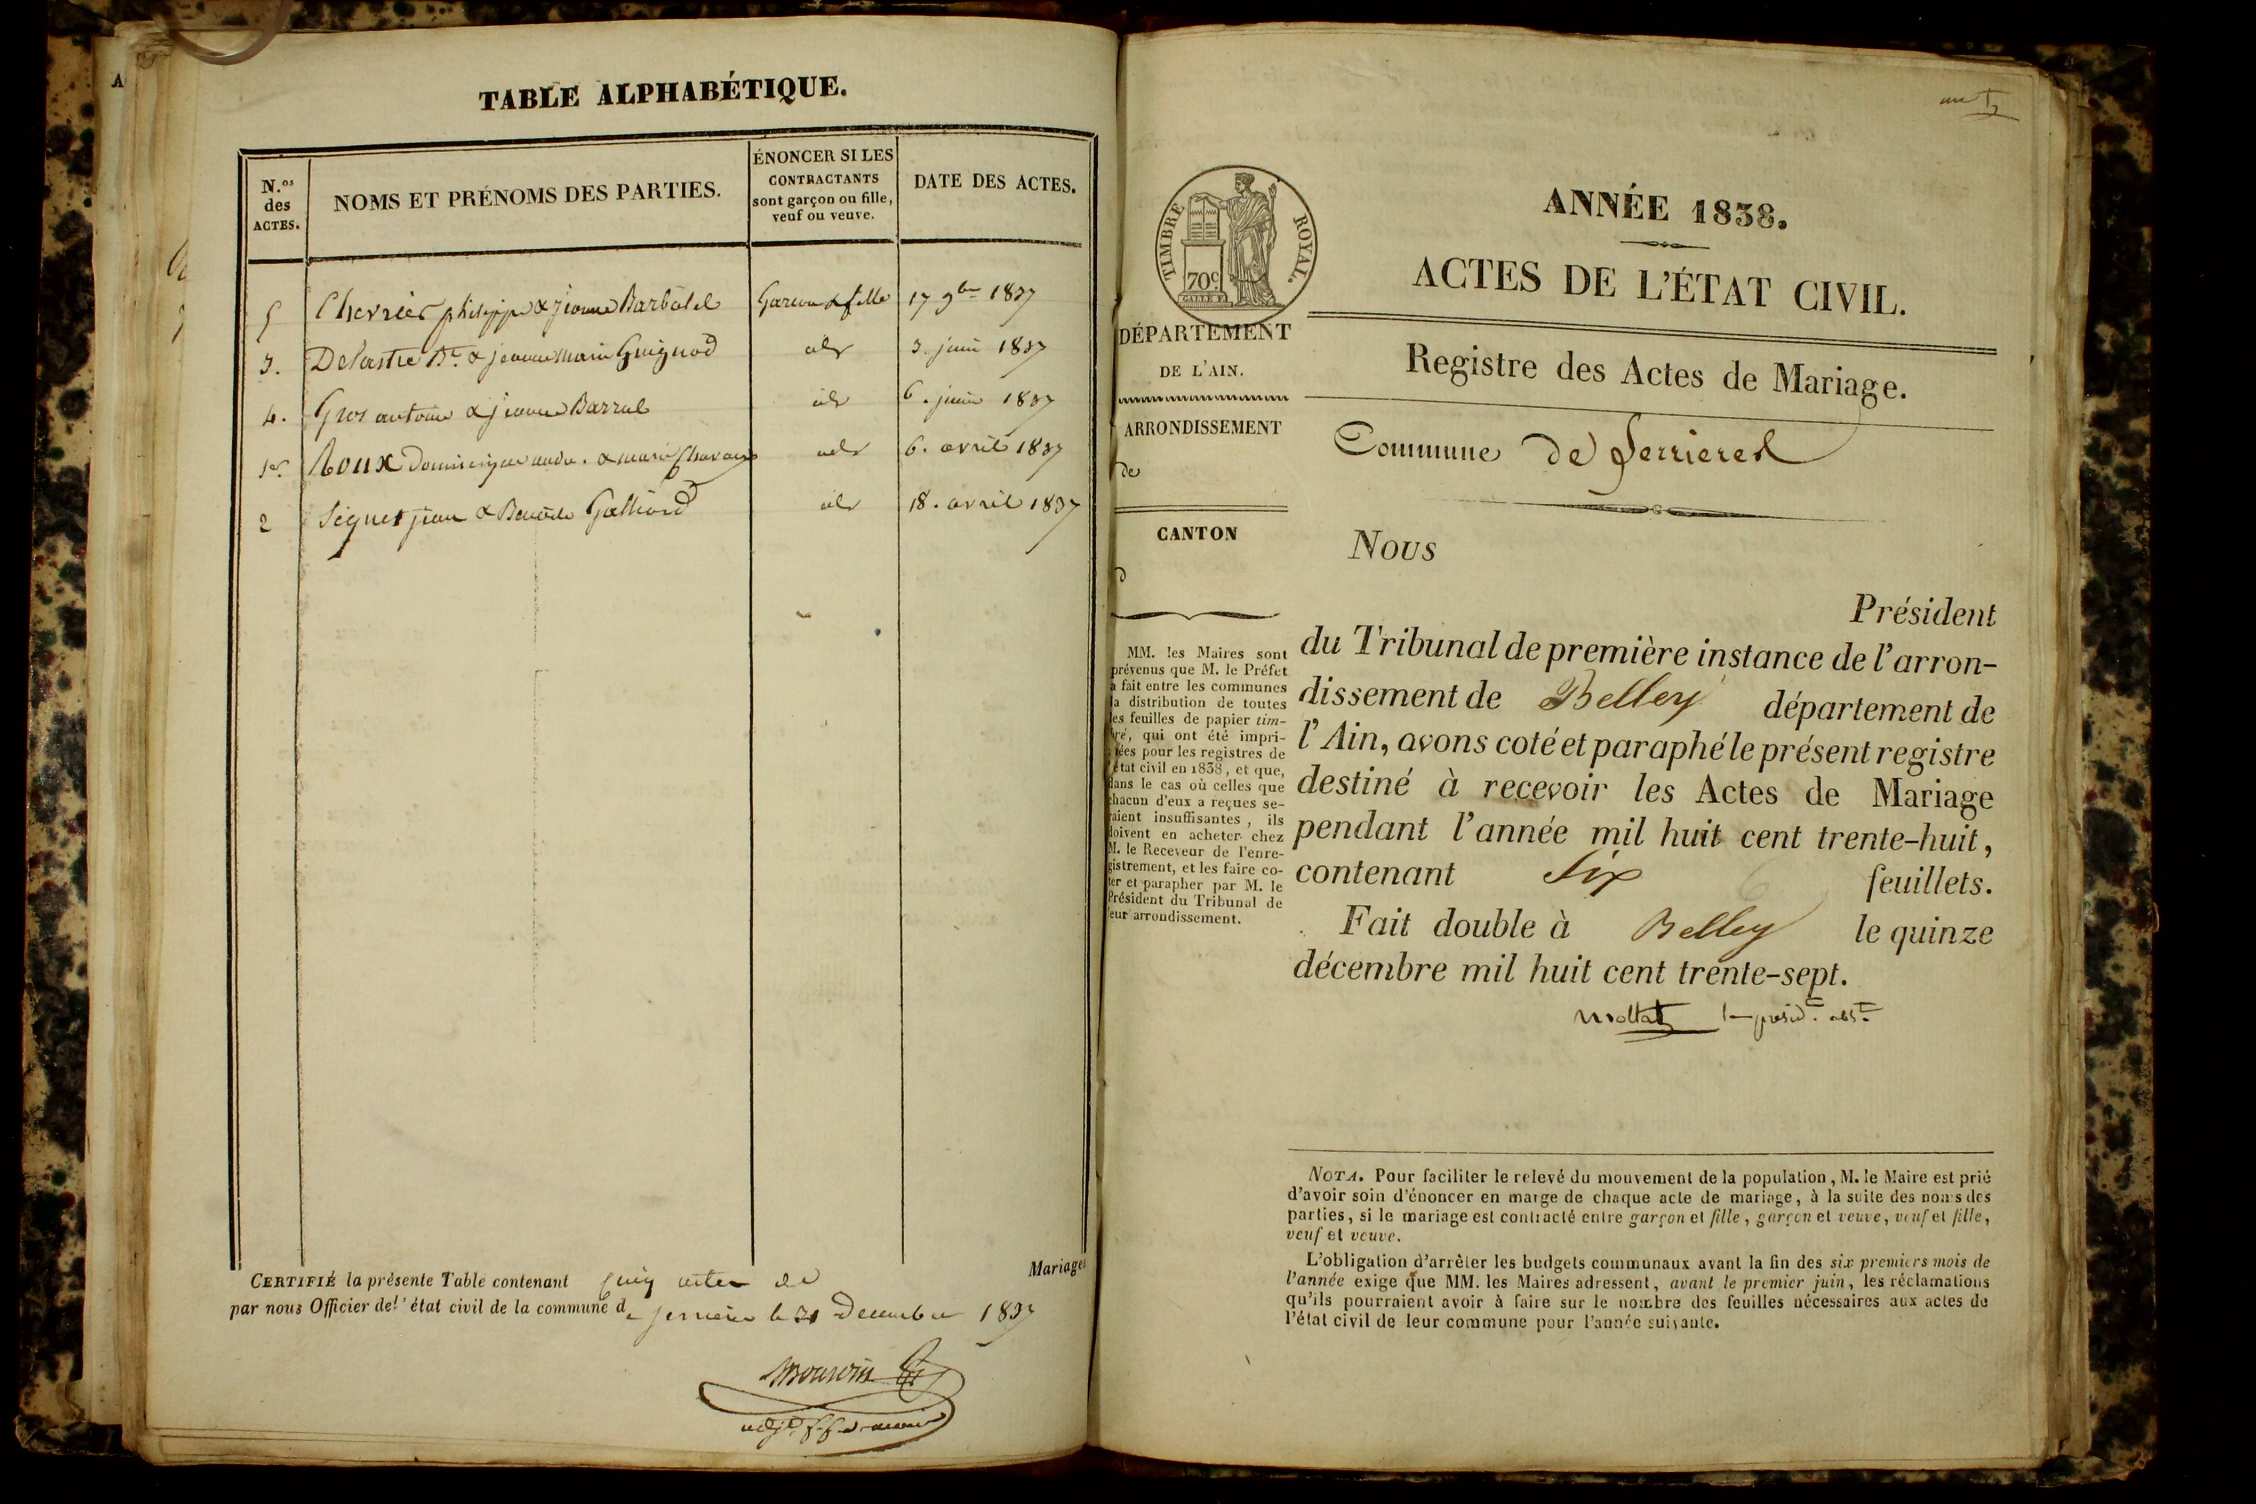 A
TABLE ALPHABÉTIQUE.
N.os des ACTES.
NOMS ET PRÉNOMS DES PARTIES.
ÉNONCER SI LES
CONTRACTANTS
sont garçon ou fille,
veuf ou veuve.
DATE DES ACTES.
5 Chevrier philippe & jeanne Barbotel Garcon & fille 17 9bre 1837
3. Delastre & jeanne Marie Guignod 3. juin 1837
4. Gros antoine & jeanne Barral 6. juin 1837
1er Roux Dominique & marie 6. avril 1837
2 Seguet jean & Benoite Galliard 18. avril 1837
Mariages
CERTIFIÉ la présente Table contenant Cinq actes de
par nous Officier de l'état civil de la commune de ferrieres le 31 Decembre 1837
TIMBRE ROYAL.
70c
ANNÉE 1838.
ACTES DE L'ÉTAT CIVIL.
DÉPARTEMENT
DE L'AIN.
ARRONDISSEMENT
de
CANTON
Registre des Actes de Mariage.
Commune de ferrieres
Nous
Président
du Tribunal de première instance de l'arron-
dissement de Belley département de
l'Ain, avons coté et paraphé le présent registre
destiné à recevoir les Actes de Mariage
pendant l'année mil huit cent trente-huit,
contenant Six 6 feuillets.
Fait double à Belley le quinze
décembre mil huit cent trente-sept.
MM. les Maires sont
prévenus que M. le Préfet
a fait entre les communes
la distribution de toutes
les feuilles de papier tim-
bré, qui ont été impri-
mées pour les registres de
l'état civil en 1838, et que,
dans le cas où celles que
chacun d'eux a reçues se-
raient insuffisantes, ils
doivent en acheter chez
M. le Receveur de l'enre-
gistrement, et les faire co-
ter et parapher par M. le
Président du Tribunal de
leur arrondissement.
NOTA. Pour faciliter le relevé du mouvement de la population, M. le Maire est prié
d'avoir soin d'énoncer en marge de chaque acte de mariage, à la suite des noms des
parties, si le mariage est contracté entre garçon et fille, garçon et veuve, veuf et fille,
veuf et veuve.
L'obligation d'arrêter les budgets communaux avant la fin des six premiers mois de
l'année exige que MM. les Maires adressent, avant le premier juin, les réclamations
qu'ils pourraient avoir à faire sur le nombre des feuilles nécessaires aux actes de
l'état civil de leur commune pour l'année suivante.